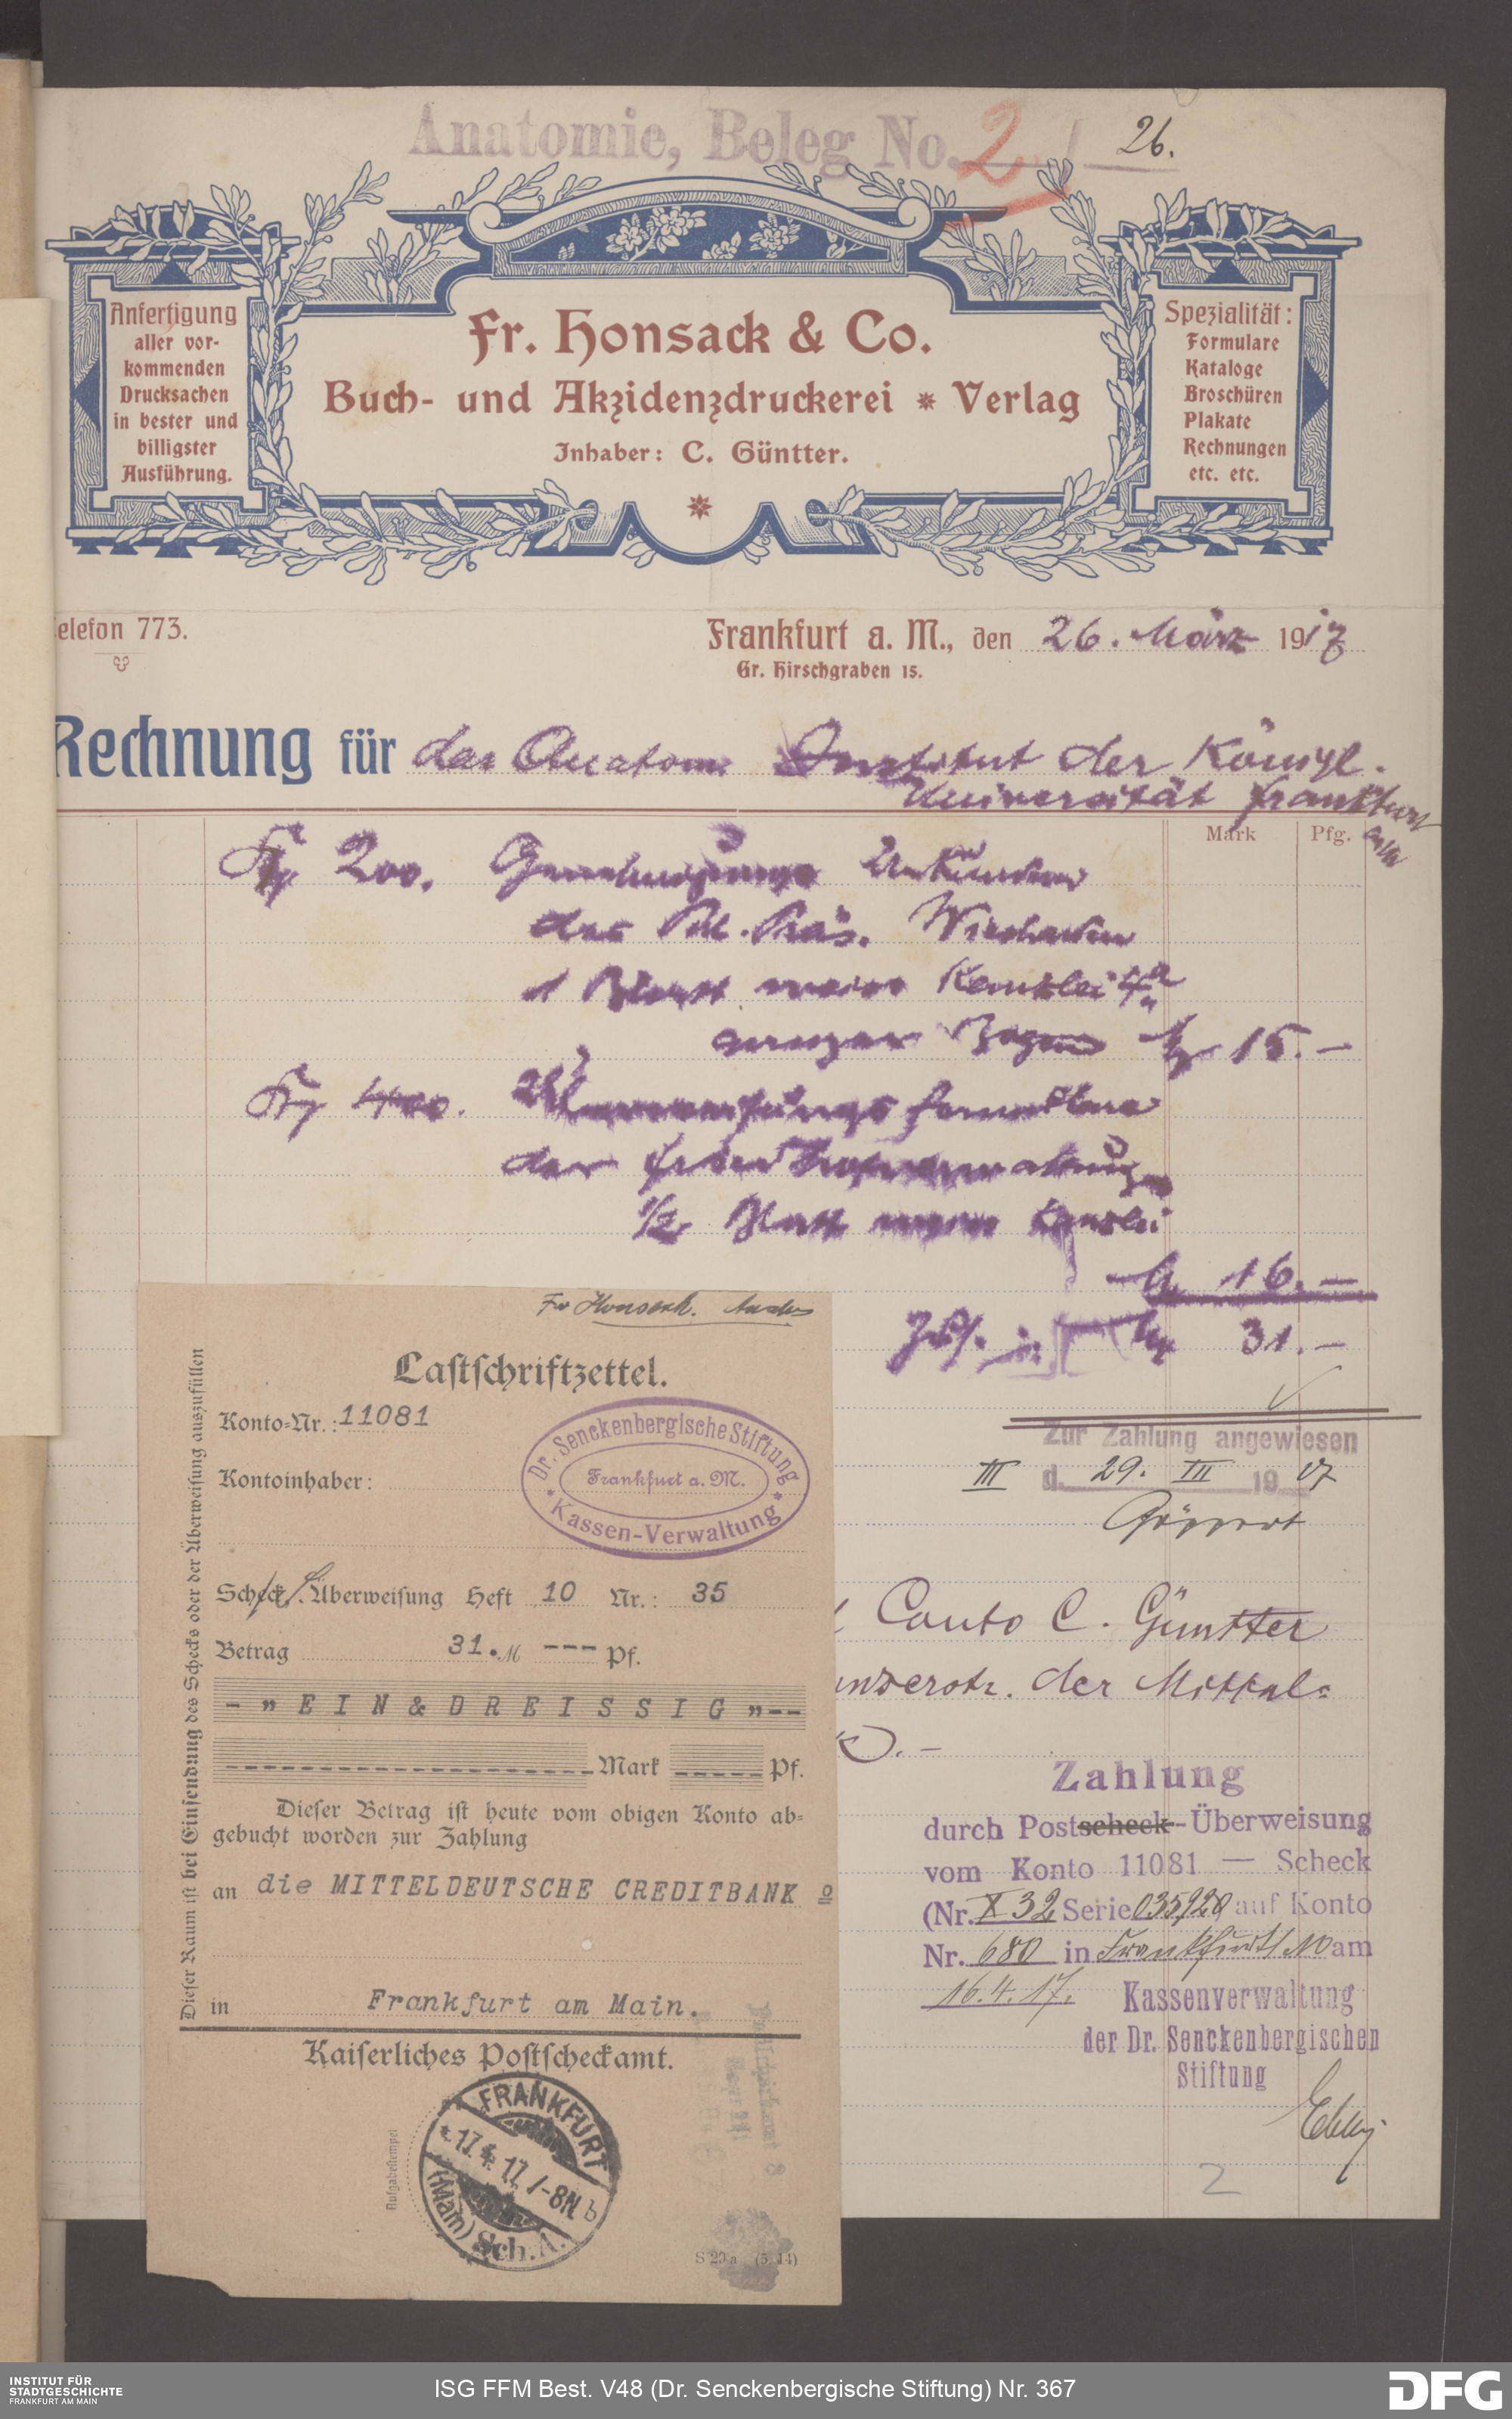 Anatomie, Beleg No. 2 / 26.
Anfertigung
aller vor-
kommenden
Drucksachen
in bester und
billigster
Ausführung.
Fr. Honsack & Co.
Buch- und Akzidenzdruckerei * Verlag
Inhaber: C. Güntter.
Spezialität:
Formulare
Kataloge
Broschüren
Plakate
Rechnungen
etc. etc.
elefon 773.
Frankfurt a. M., den 26. März 1917
Gr. Hirschgraben 15.
Rechnung für das Anatom. Institut der Königl.
Universität Frankfurt
a/M
Mark Pfg.
200. Genehmigungs Urkunden
des Pol. Präs. Wiesbaden
1 Blatt Kanzlei
Bogen M 15.-
400. formulare
der
1/2 Blatt Kanzlei
M 16.-
M 31.-
Zur Zahlung angewiesen
III d. 29. III 1917
Göppert
Conto C. Güntter
der Mittel-
Zahlung
durch Postscheck-Überweisung
vom Konto 11081 — Scheck
(Nr. X 32 Serie 035920 auf Konto
Nr. 680 in Frankfurt/M am
16.4.17. Kassenverwaltung
der Dr. Senckenbergischen
Stiftung
2
Fr Honsack.
Lastschriftzettel.
Konto-Nr.: 11081
Kontoinhaber:
Dr. Senckenbergische Stiftung
Frankfurt a. M.
* Kassen-Verwaltung *
Scheck/Überweisung Heft 10 Nr.: 35
Betrag 31. M --- Pf.
- " EIN & DREISSIG "--
Mark Pf.
Dieser Betrag ist heute vom obigen Konto ab-
gebucht worden zur Zahlung
an die MITTELDEUTSCHE CREDITBANK
in Frankfurt am Main.
Kaiserliches Postscheckamt.
Dieser Raum ist bei Einsendung des Schecks oder der Überweisung auszufüllen
Aufgabestempel
FRANKFURT
17.4.17. 7-8N b
(Main) Sch.A.
S 20a (5.14)
INSTITUT FÜR
STADTGESCHICHTE
FRANKFURT AM MAIN
ISG FFM Best. V48 (Dr. Senckenbergische Stiftung) Nr. 367
DFG